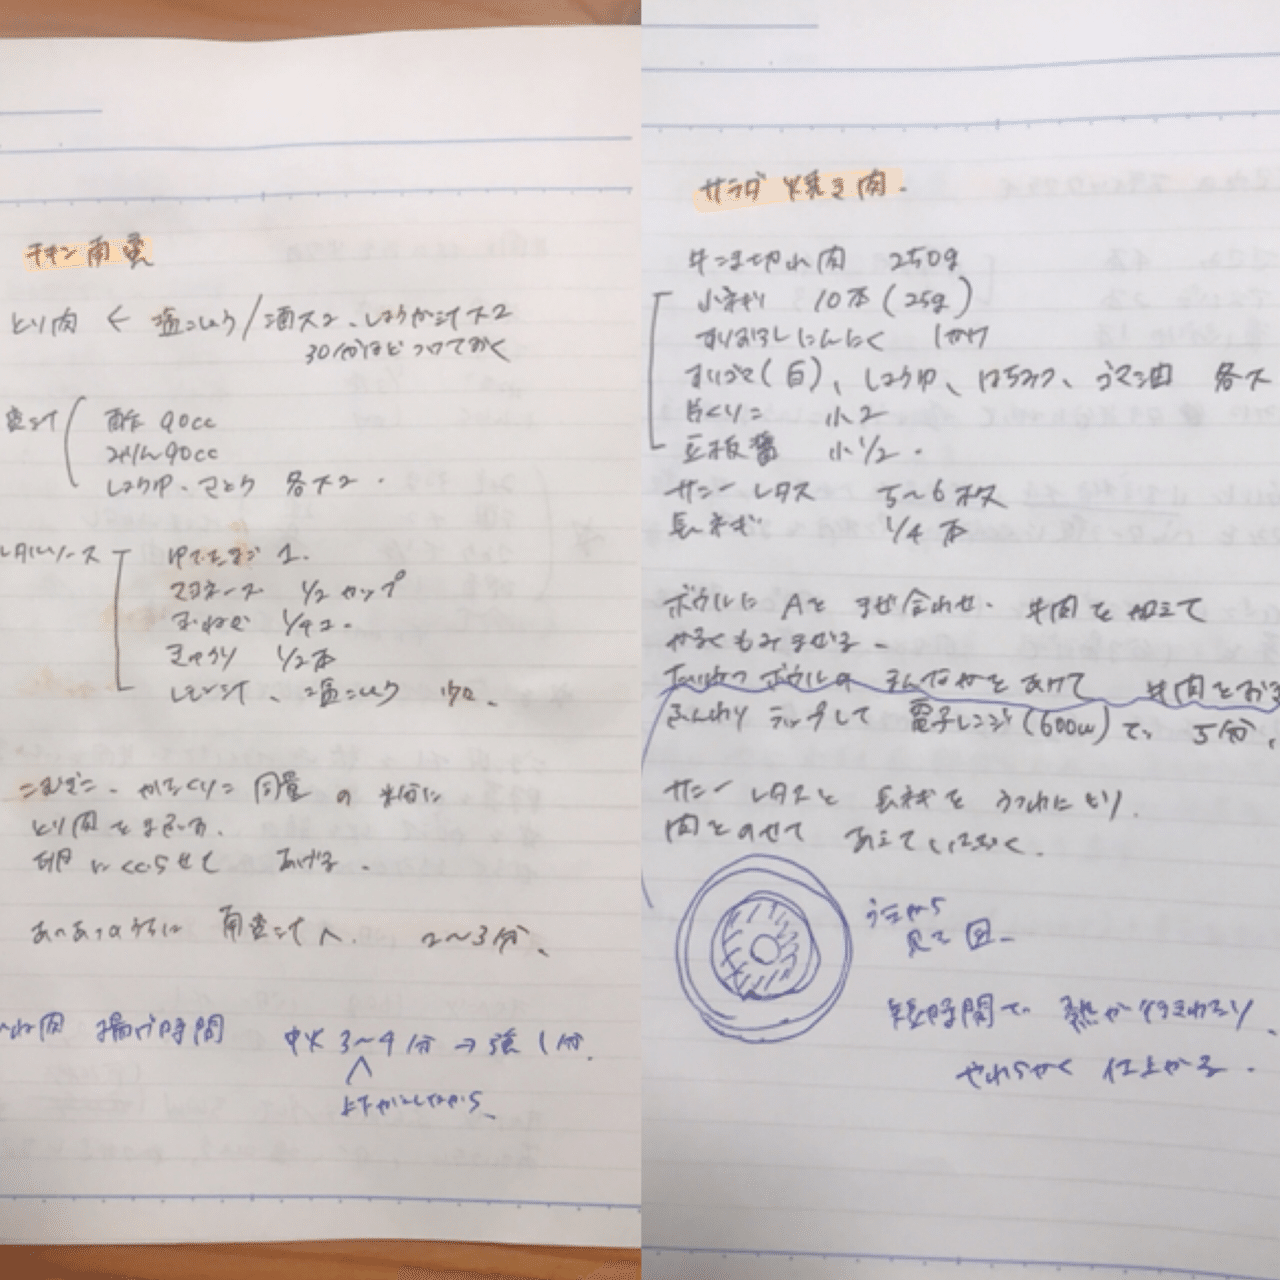 チキン南蛮
とり肉 ← 塩こしょう/酒大2、しょうが汁大2
30分ほどつけておく
蛮汁
酢 90cc
みりん90cc
しょうゆ、さとう 各大2.
タルソース
ゆでたまご 1.
マヨネーズ 1/2カップ
玉ねぎ 1/4コ.
きゅうり 1/2本
レモン汁、塩こしょう 少々、
こむぎこ、かたくりこ 同量の水分に
とり肉をまぜる.
卵にくぐらせて あげる.
あつあつのうちに 南蛮汁へ. 2〜3分、
むね肉 揚げ時間 中火 3〜4分→強1分.
上下かえしながら、
サラダ焼き肉.
牛こま切れ肉 250g
小ネギ 10本(25g)
すりおろしにんにく 1かけ
すりごま(白)、しょうゆ、はちみつ、ゴマ油 各大
片くりこ 小2
豆板醤 小1/2.
サニーレタス 5〜6枚
長ネギ 1/4本
ボウルにAをまぜ合わせ、牛肉を加えて
かるくもみまぜる.
ボウルのまんなかをあけて 牛肉を
ふんわりラップして 電子レンジ(600w)で 5分、
サニーレタスと長ネギをうつわにとり.
肉をのせて あえていただく.
うえから
見た図.
短時間で 熱が行きわたり
やわらかく 仕上がる.